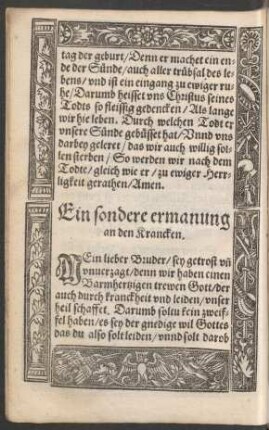 tag der geburt/Denn er machet ein en-
de der Sünde/auch aller trübsal des le-
bens/vnd ist ein eingang zu ewiger ru-
he/Darumb heisset vns Christus seines
Todts so fleissig gedencken/Als lange
wir hie leben. Durch welchen Todt er
vnsere Sünde gebüsset hat/Vnnd vns
darbey geleret/das wir auch willig sol-
len sterben/So werden wir nach dem
Todte/gleich wie er/zu ewiger Herr-
ligkeit gerathen/Amen.
Ein sondere ermanung
an den Krancken.
MEin lieber Bruder/sey getrost vñ
vnuerzagt/denn wir haben einen
Barmhertzigen trewen Gott/der
auch durch kranckheit vnd leiden/vnser
heil schaffet. Darumb soltu kein zweif-
fel haben/es sey der gnedige wil Gottes
das du also solt leiden/vnnd solt darob